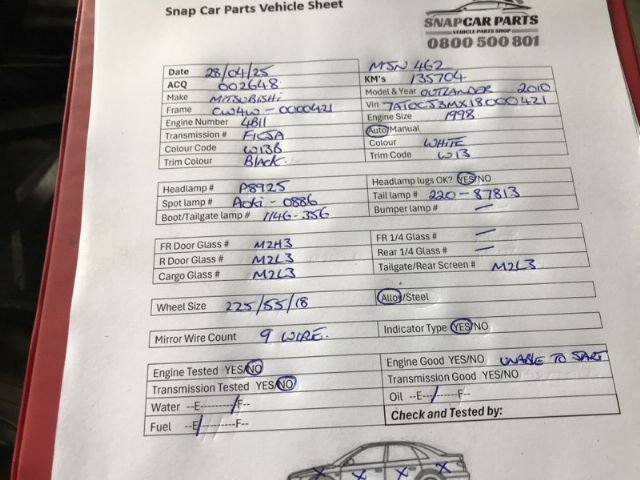 Snap Car Parts Vehicle Sheet
SNAPCAR PARTS
VEHICLE PARTS SHOP
0800 500 801
Date 28/04/25 MSN 462
ACQ 002648 KM's 135704
Make MITSUBISHI Model & Year OUTLANDER 2010
Frame CW4W-0000421 Vin 7AT0CJ3MX18000421
Engine Number 4B11 Engine Size 1998
Transmission # F1CJA Auto/Manual
Colour Code W13B Colour WHITE
Trim Colour BLACK Trim Code W13
Headlamp # P8925 Headlamp lugs OK? YES/NO
Spot lamp # Aoki - 0886 Tail lamp # 220-87813
Boot/Tailgate lamp # 1146-356 Bumper lamp # —
FR Door Glass # M2H3 FR 1/4 Glass # —
R Door Glass # M2L3 Rear 1/4 Glass # —
Cargo Glass # M2L3 Tailgate/Rear Screen # M2L3
Wheel Size 225/55/18 Alloy/Steel
Mirror Wire Count 9 WIRE. Indicator Type YES/NO
Engine Tested YES/NO Engine Good YES/NO UNABLE TO START
Transmission Tested YES/NO Transmission Good YES/NO
Water --E---------/F-- Oil --E--/------F--
Fuel --E/---------F-- Check and Tested by: